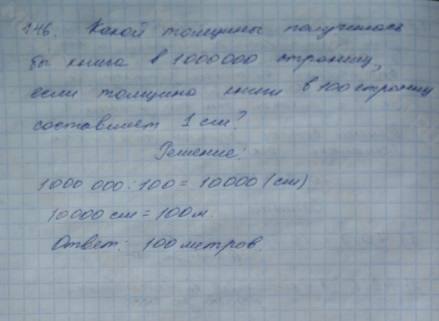 146. Какой толщины получилась
бы книга в 1000000 страниц,
если толщина книги в 100 страниц
составляет 1 см?
Решение:
1000 000 : 100 = 10000 (см)
10000 см = 100 м.
Ответ: 100 метров.